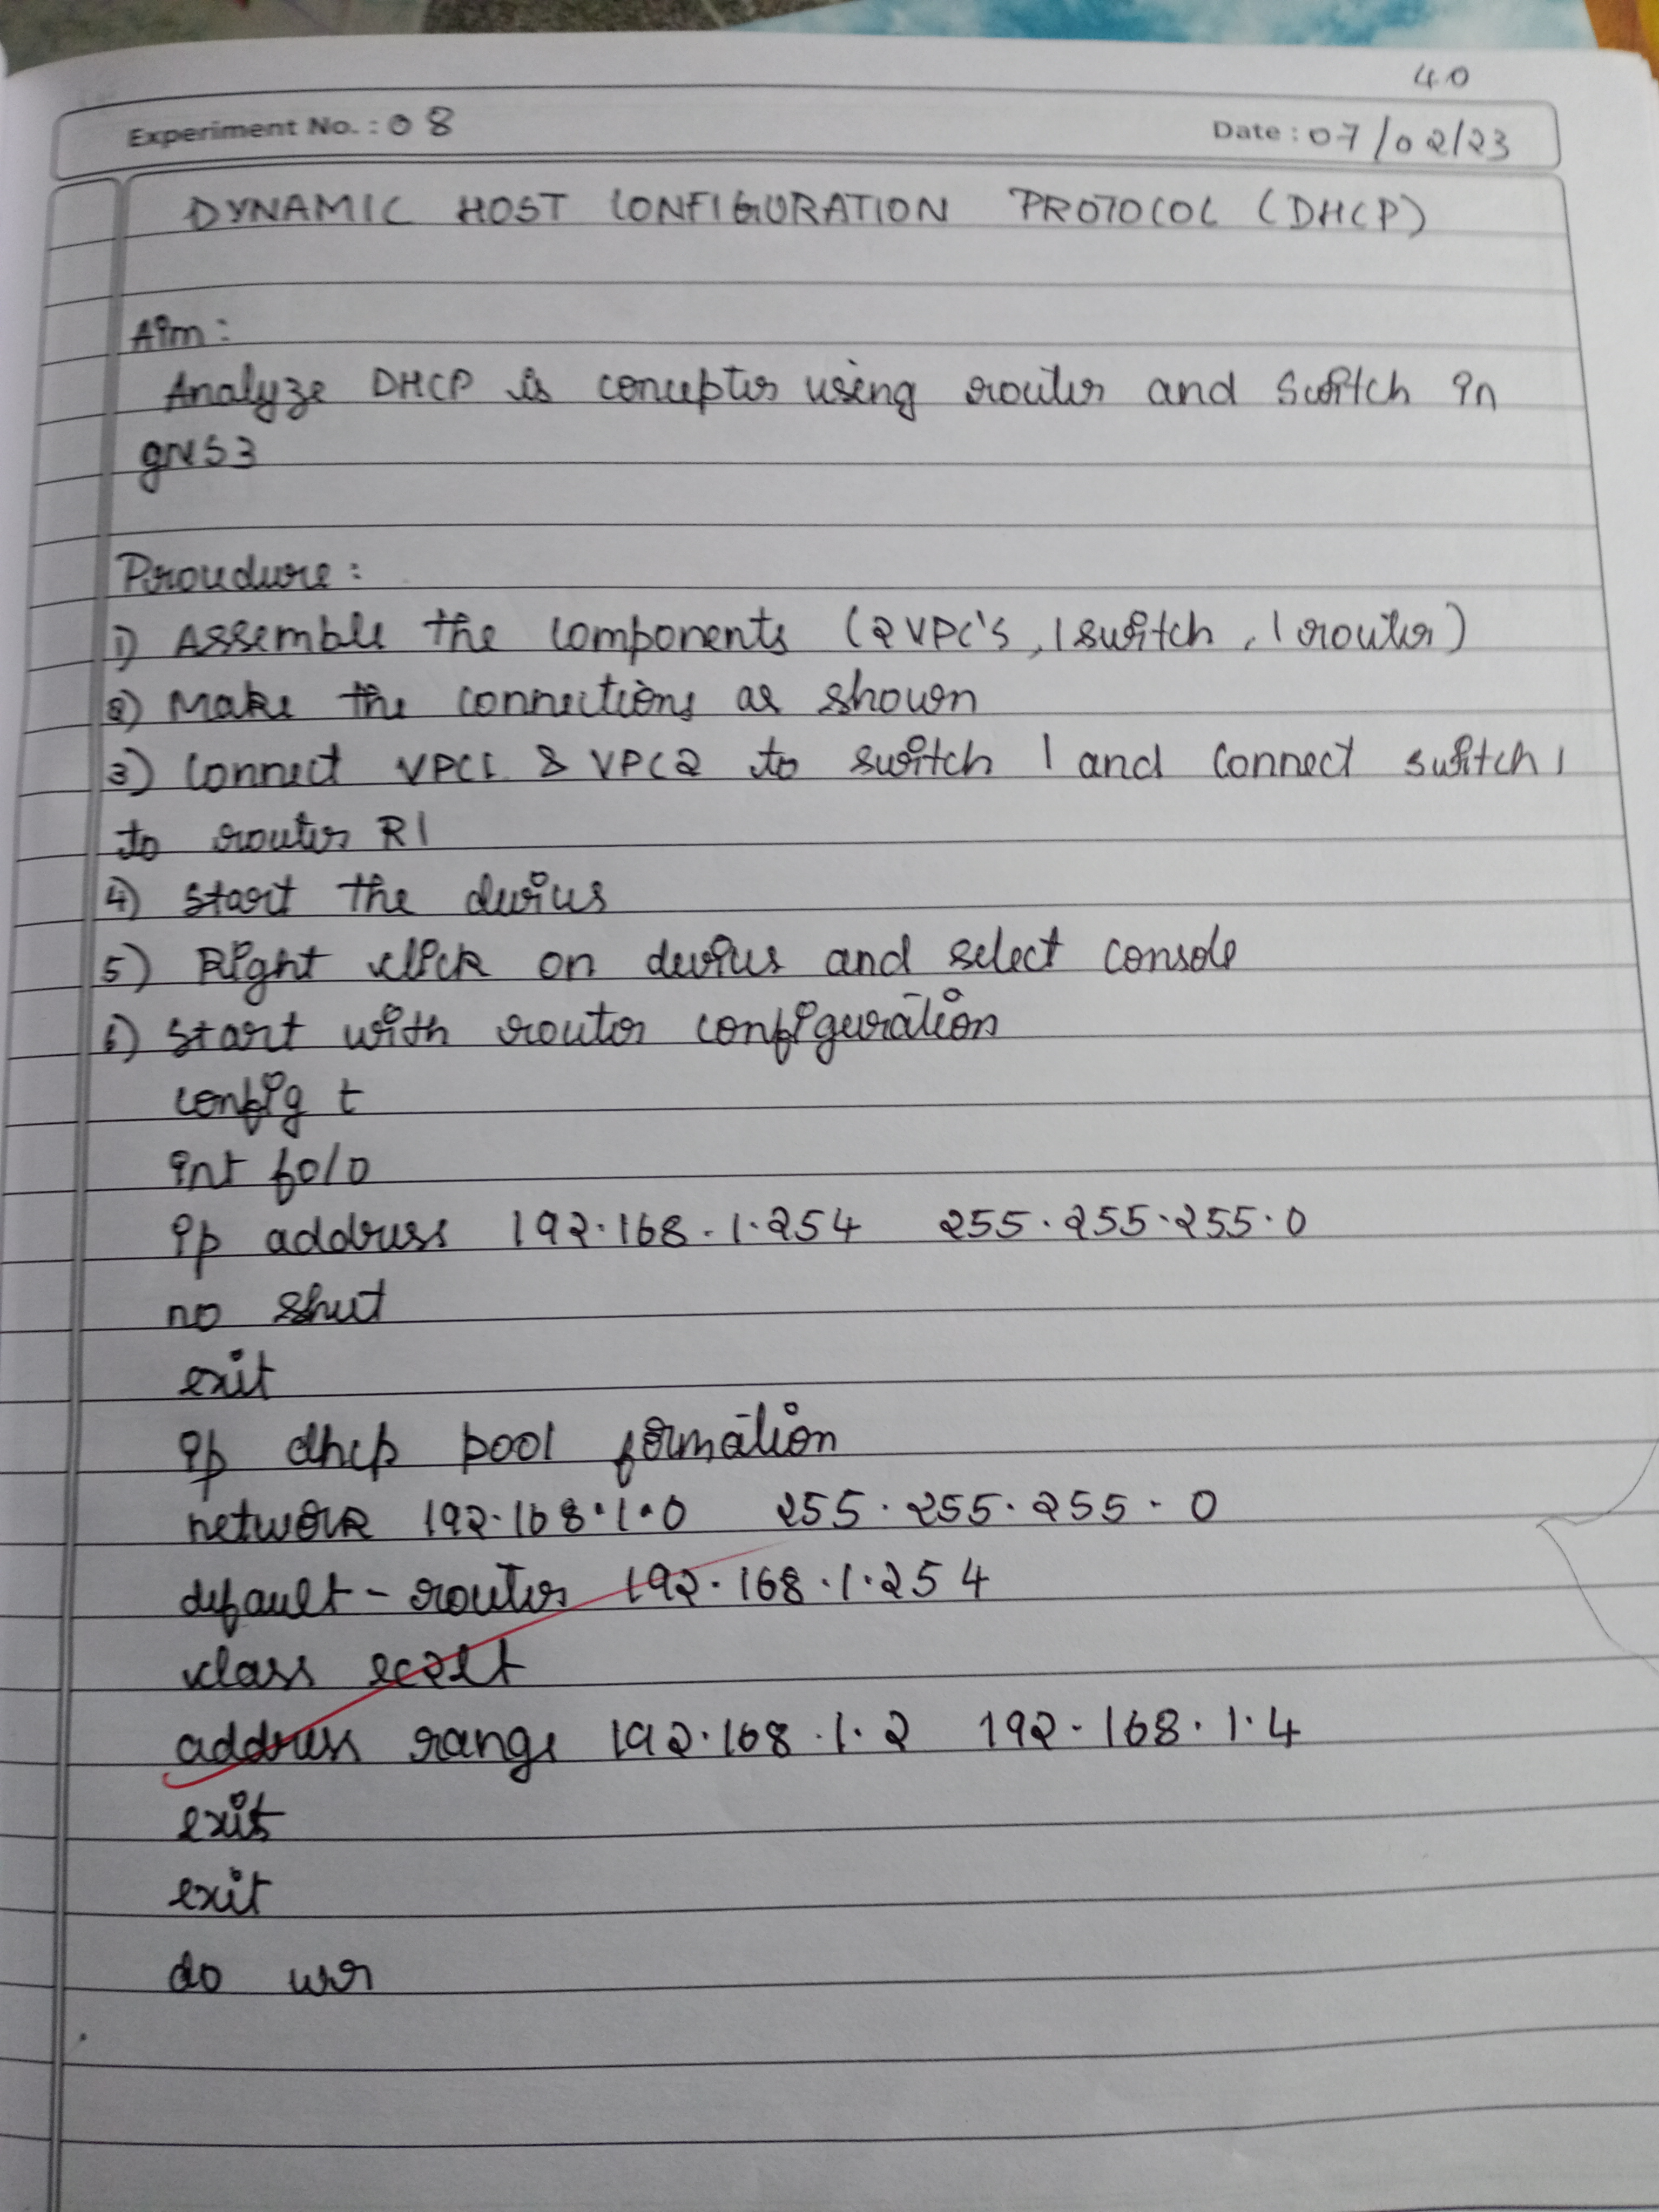 40
Experiment No. : 08 Date : 07/02/23
DYNAMIC HOST CONFIGURATION PROTOCOL (DHCP)
Aim:
Analyze DHCP is concepts using router and switch in
gNS3
Procedure:
1) Assemble the components (2 VPC's, 1 switch, 1 router)
2) Make the connections as shown
3) Connect VPC1 & VPC2 to switch 1 and connect switch 1
to router R1
4) Start the devices
5) Right click on devices and select console
6) Start with router configuration
config t
int f0/0
ip address 192.168.1.254 255.255.255.0
no shut
exit
ip dhcp pool formation
network 192.168.1.0 255.255.255.0
default-router 192.168.1.254
class
address range 192.168.1.2 192.168.1.4
exit
exit
do wr